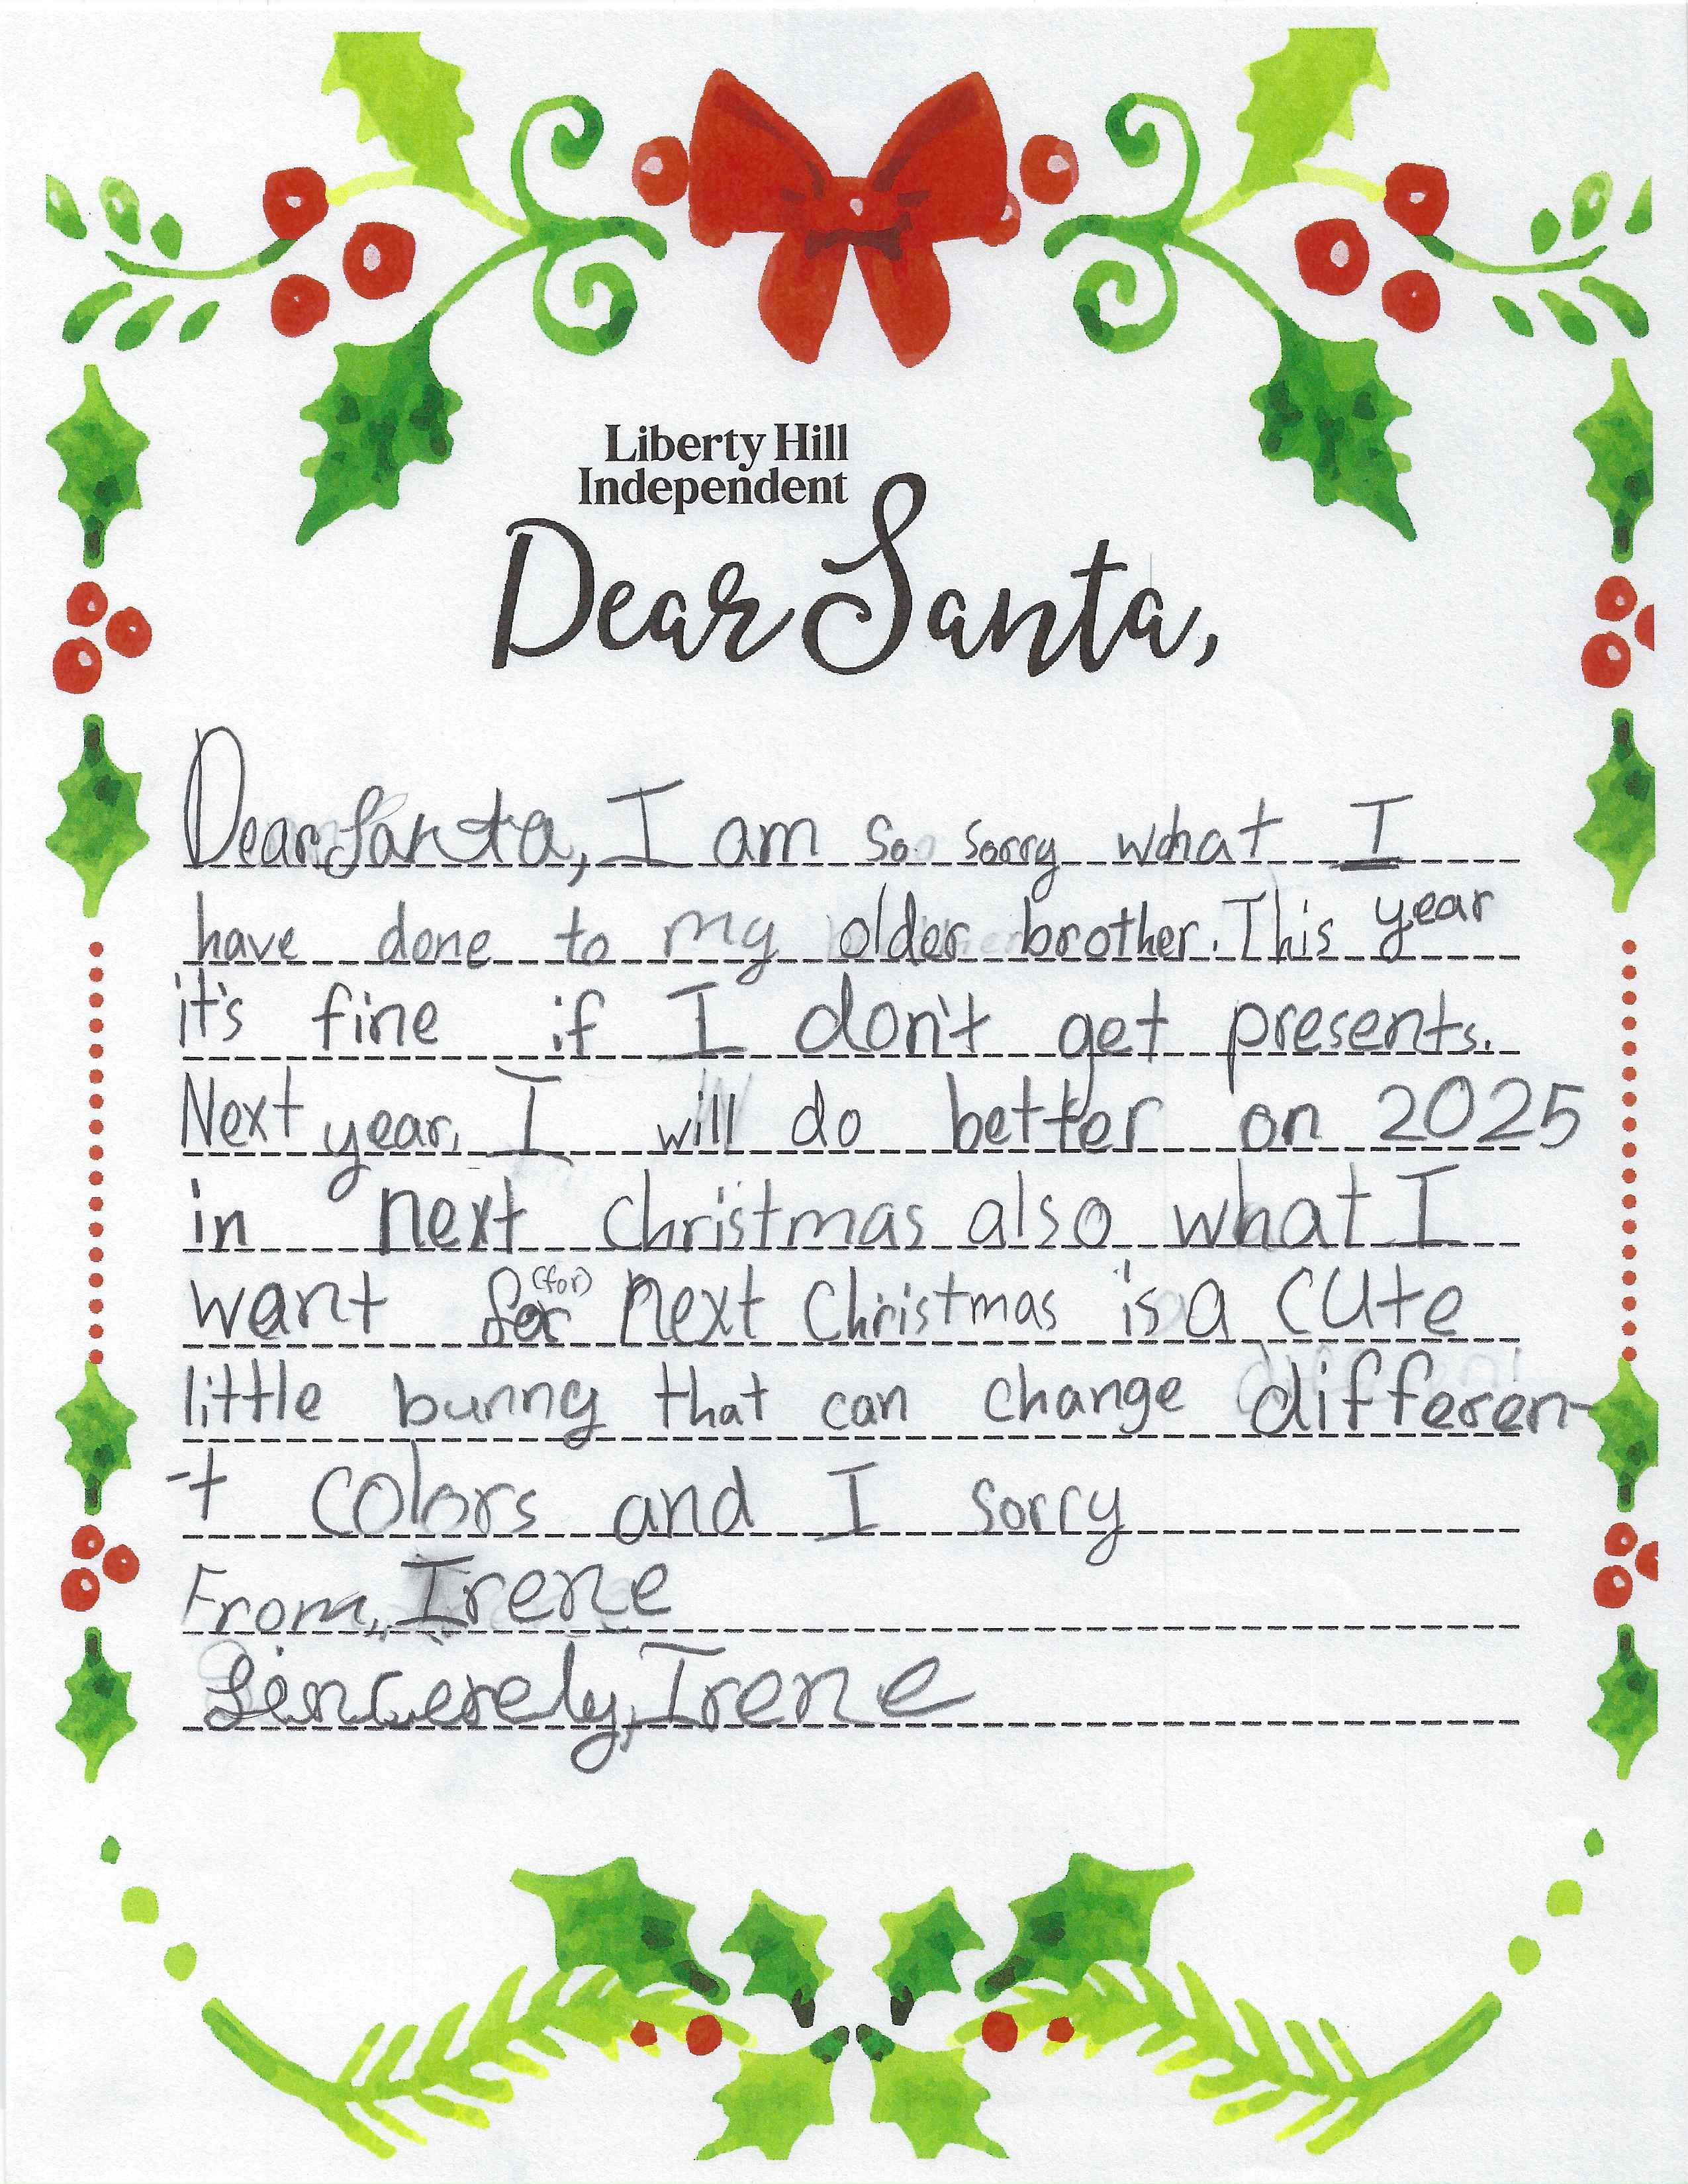 Liberty Hill
Independent
Dear Santa,
Dear Santa, I am so sorry what I
have done to my older brother. This year
it's fine if I don't get presents.
Next year, I will do better on 2025
in next christmas also what I
want for (for) next Christmas is a cute
little bunny that can change differen-
-t colors and I sorry
From, Irene
Sincerely, Irene